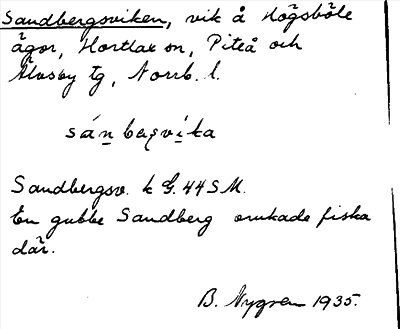 Sandbergsviken, vik å Högsböle
ägor, Hortlax sn, Piteå och
Älvsby tg, Norrb. l.
sánbaʒvíka
Sandbergsv. k G. 44 S M.
En gubbe Sandberg brukade fiska
där.
B. Nygren 1935.